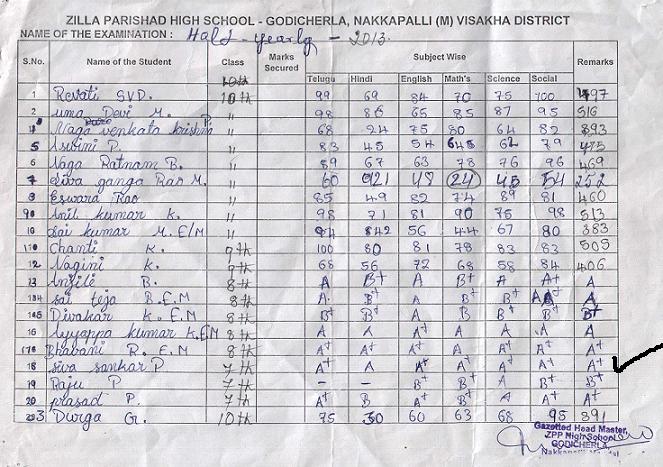 ZILLA PARISHAD HIGH SCHOOL - GODICHERLA, NAKKAPALLI (M) VISAKHA DISTRICT
NAME OF THE EXAMINATION : Half - yearly - 2013.
S.No. Name of the Student Class Marks Secured Subject Wise Remarks
Telugu Hindi English Math's Science Social
1 Revati S.V.D. 10th 99 69 84 70 75 100 497
2 uma Devi M. " 98 86 65 85 87 95 516
Naga venkata krishna P. " 68 24 75 80 64 82 393
5 Asvini P. " 83 45 54 62 79
6 Naga Ratnam B. " 89 67 63 78 76 96 469
7 Siva ganga Rao M. " 60 48 24 45 54 252
Eswara Rao " 85 49 82 74 89 81 460
Anil kumar K. " 98 71 81 90 75 98 513
10 Sai kumar M. E/M " 94 56 44 67 80 383
Chanti K. 9th 100 80 81 78 83 83 505
12 Nagini K. 9th 68 56 72 68 58 84 406
B. 8th A B+ A B+ A A+ A
sai teja B.E.M 8th A B+ A B+ B+ A A
Divakar K. E.M 8th B+ B+ A B+ B+ B+
Ayyappa kumar K.E.M 8th A A A+ A A A A
Bhavani R. E.M 8th A+ A+ A+ A A+ A+ A+
18 siva sankar P 7th A+ A A+ A+ A+ A+ A+
19 Raju P 7th - - B+ B+ A B+ B+
20 prasad P. 7th A B A+ A+ A A+ A+
Durga G. 10th 75 30 60 63 68 95 391
Gazetted Head Master,
ZPP High School
GODICHERLA,